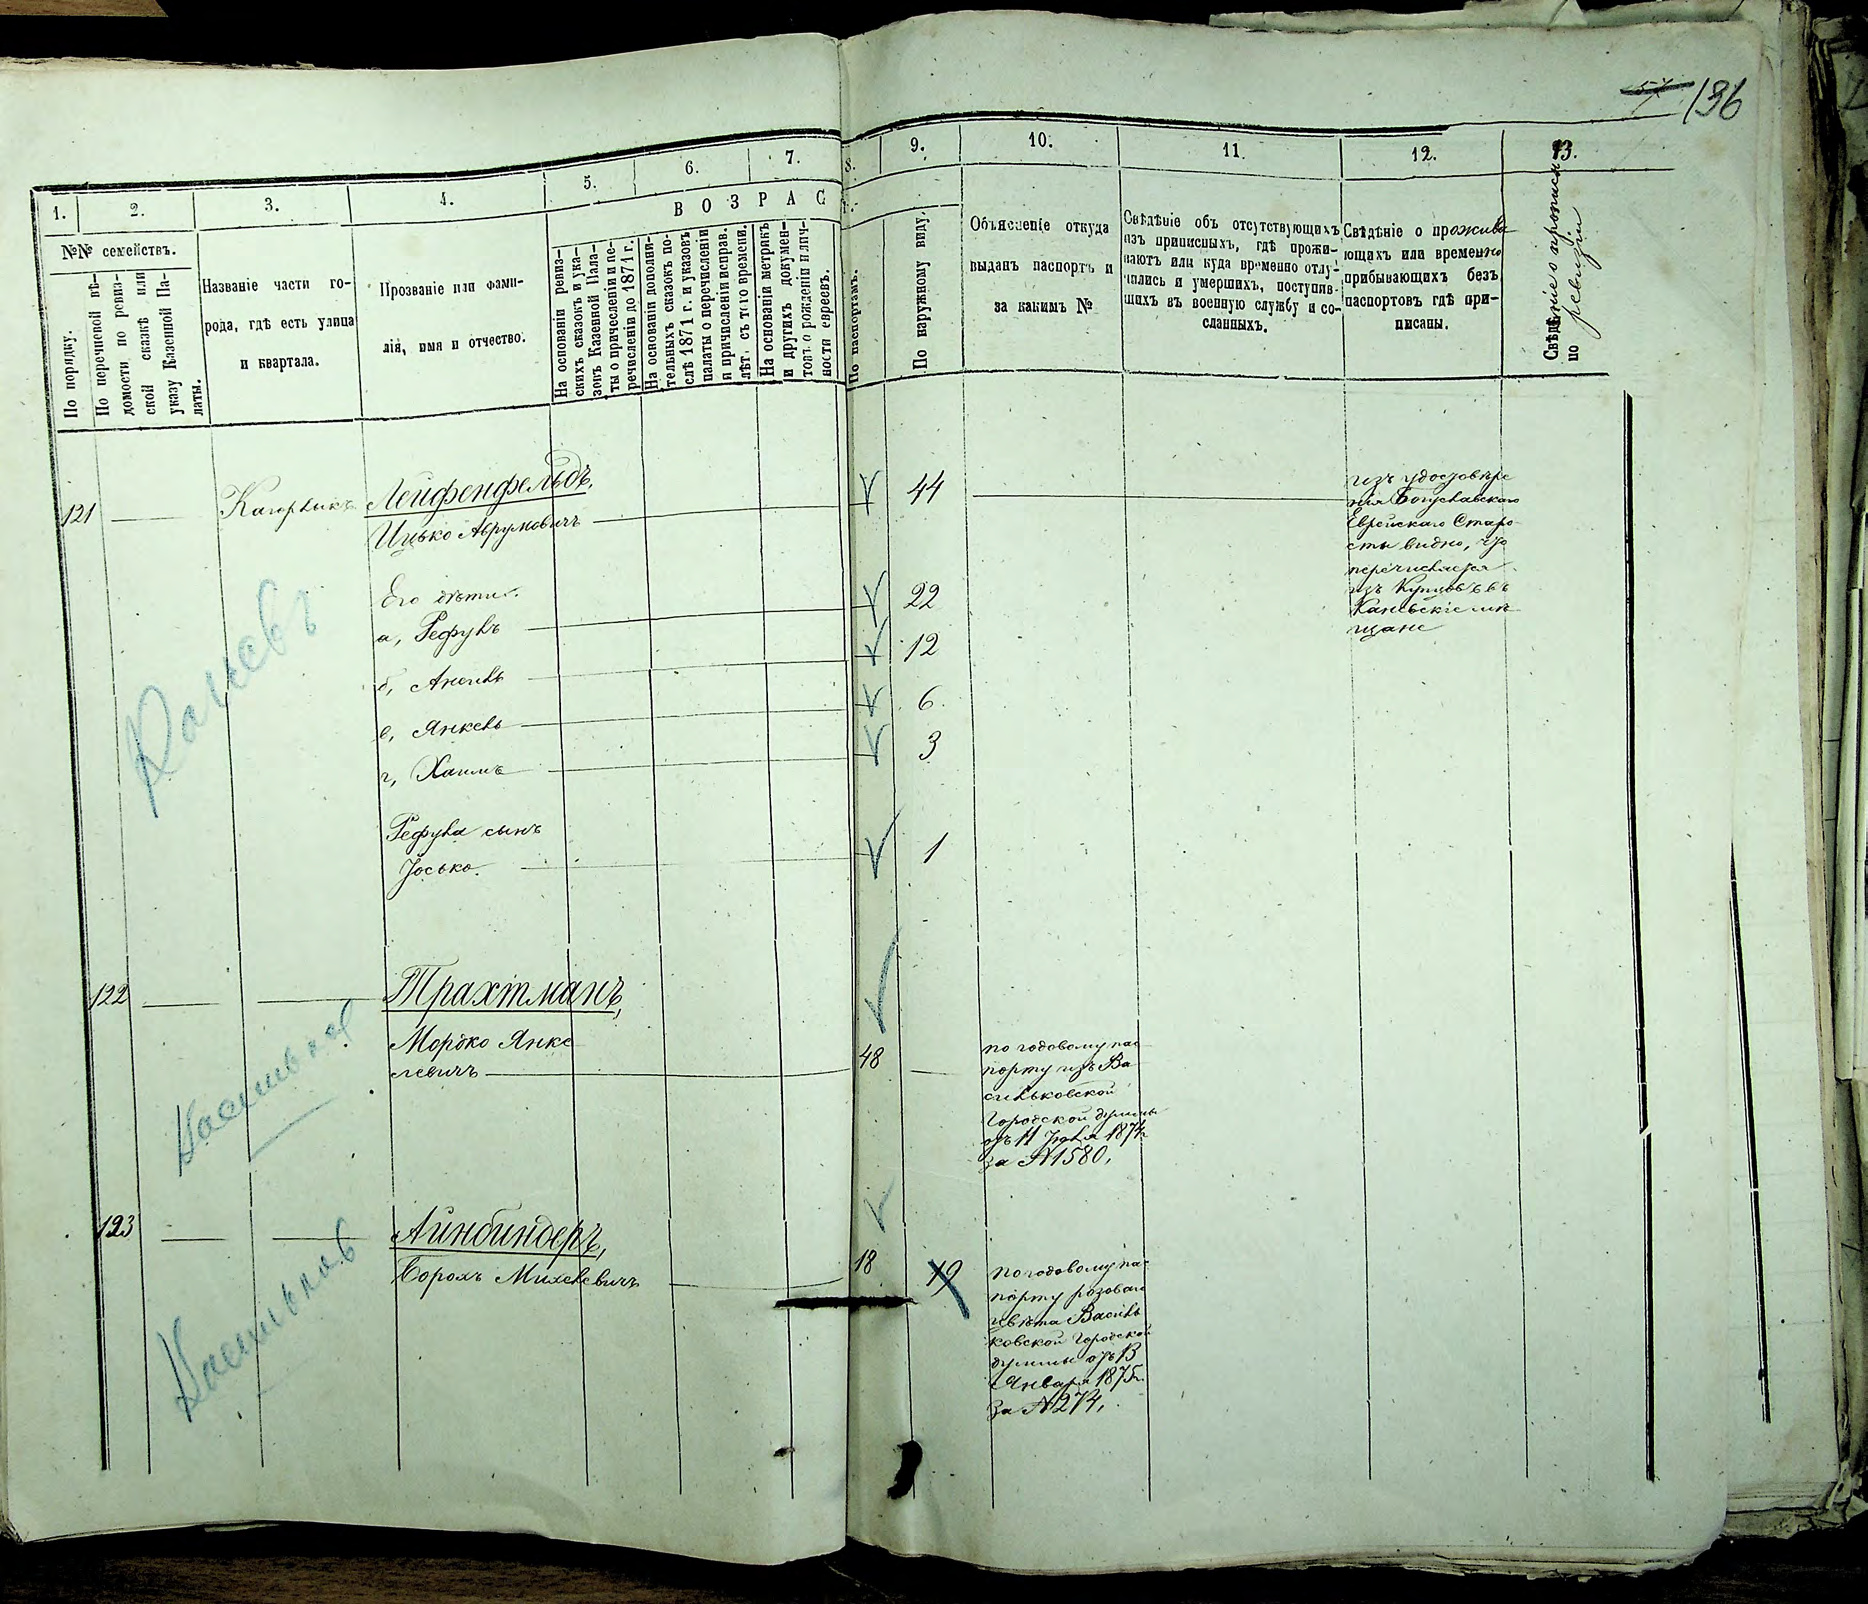 57 136
1. 2. 3. 4. 5. 6. 7. 8. 9. 10. 11. 12. 13.
№№ семействъ.
По порядку.
По перечневой вѣ-
домости по ревиз-
ской сказкѣ или
указу Казенной Па-
латы.
Названіе части го-
рода, гдѣ есть улица
и квартала.
Прозваніе или фами-
лія, имя и отчество.
ВОЗРАСТ.
На основаніи ревиз-
скихъ сказокъ и ука-
зовъ Казенной Пала-
ты о причисленіи и пе-
речисленіи до 1871 г.
На основаніи дополни-
тельныхъ сказокъ по-
слѣ 1871 г. и указовъ
палаты о перечисленіи
и причисленіи исправ.
лѣт. съ того времени.
На основаніи метрикъ
и другихъ докумен-
товъ о рожденіи и лич-
ности евреевъ.
По паспортамъ.
По наружному виду.
Объясненіе откуда
выданъ паспортъ и
за какимъ №
Свѣдѣніе объ отсутствующихъ
изъ приписныхъ, гдѣ прожи-
ваютъ или куда временно отлу-
чились и умершихъ, поступив-
шихъ въ военную службу и со-
сланныхъ.
Свѣдѣніе о прожива-
ющихъ или временно
прибывающихъ безъ
паспортовъ гдѣ при-
писаны.
Свѣдѣніе о прописк
по ревизіи
121 Кагарлыкъ Лейфенфельдъ,
Ицько Аврумовичъ 44
Его дѣти:
а, Рефулъ 22
б, 12
в, Янкель 6.
г, Хаимъ 3
Рефула сынъ
Іосько. 1
изъ удостовѣре
нія Богуславскаго
Еврейскаго Старо-
сты видно, что
перечисляется
изъ Купцовъ въ
Каневскіе мѣ
щане
Каневъ
122 Трахтманъ,
Мордко Янке
левичъ 48
по годовому пас
порту изъ Ва
сильковской
Городской думы
отъ 11 Іюля 1874г.
за №1580,
Васильков
123 Айнбиндеръ,
Сорохъ Михелевичъ 18 19
по годовому па-
порту розоваго
цвѣта Василь
ковской Городской
думы отъ 13
Января 1875г.
За №274,
Васильков